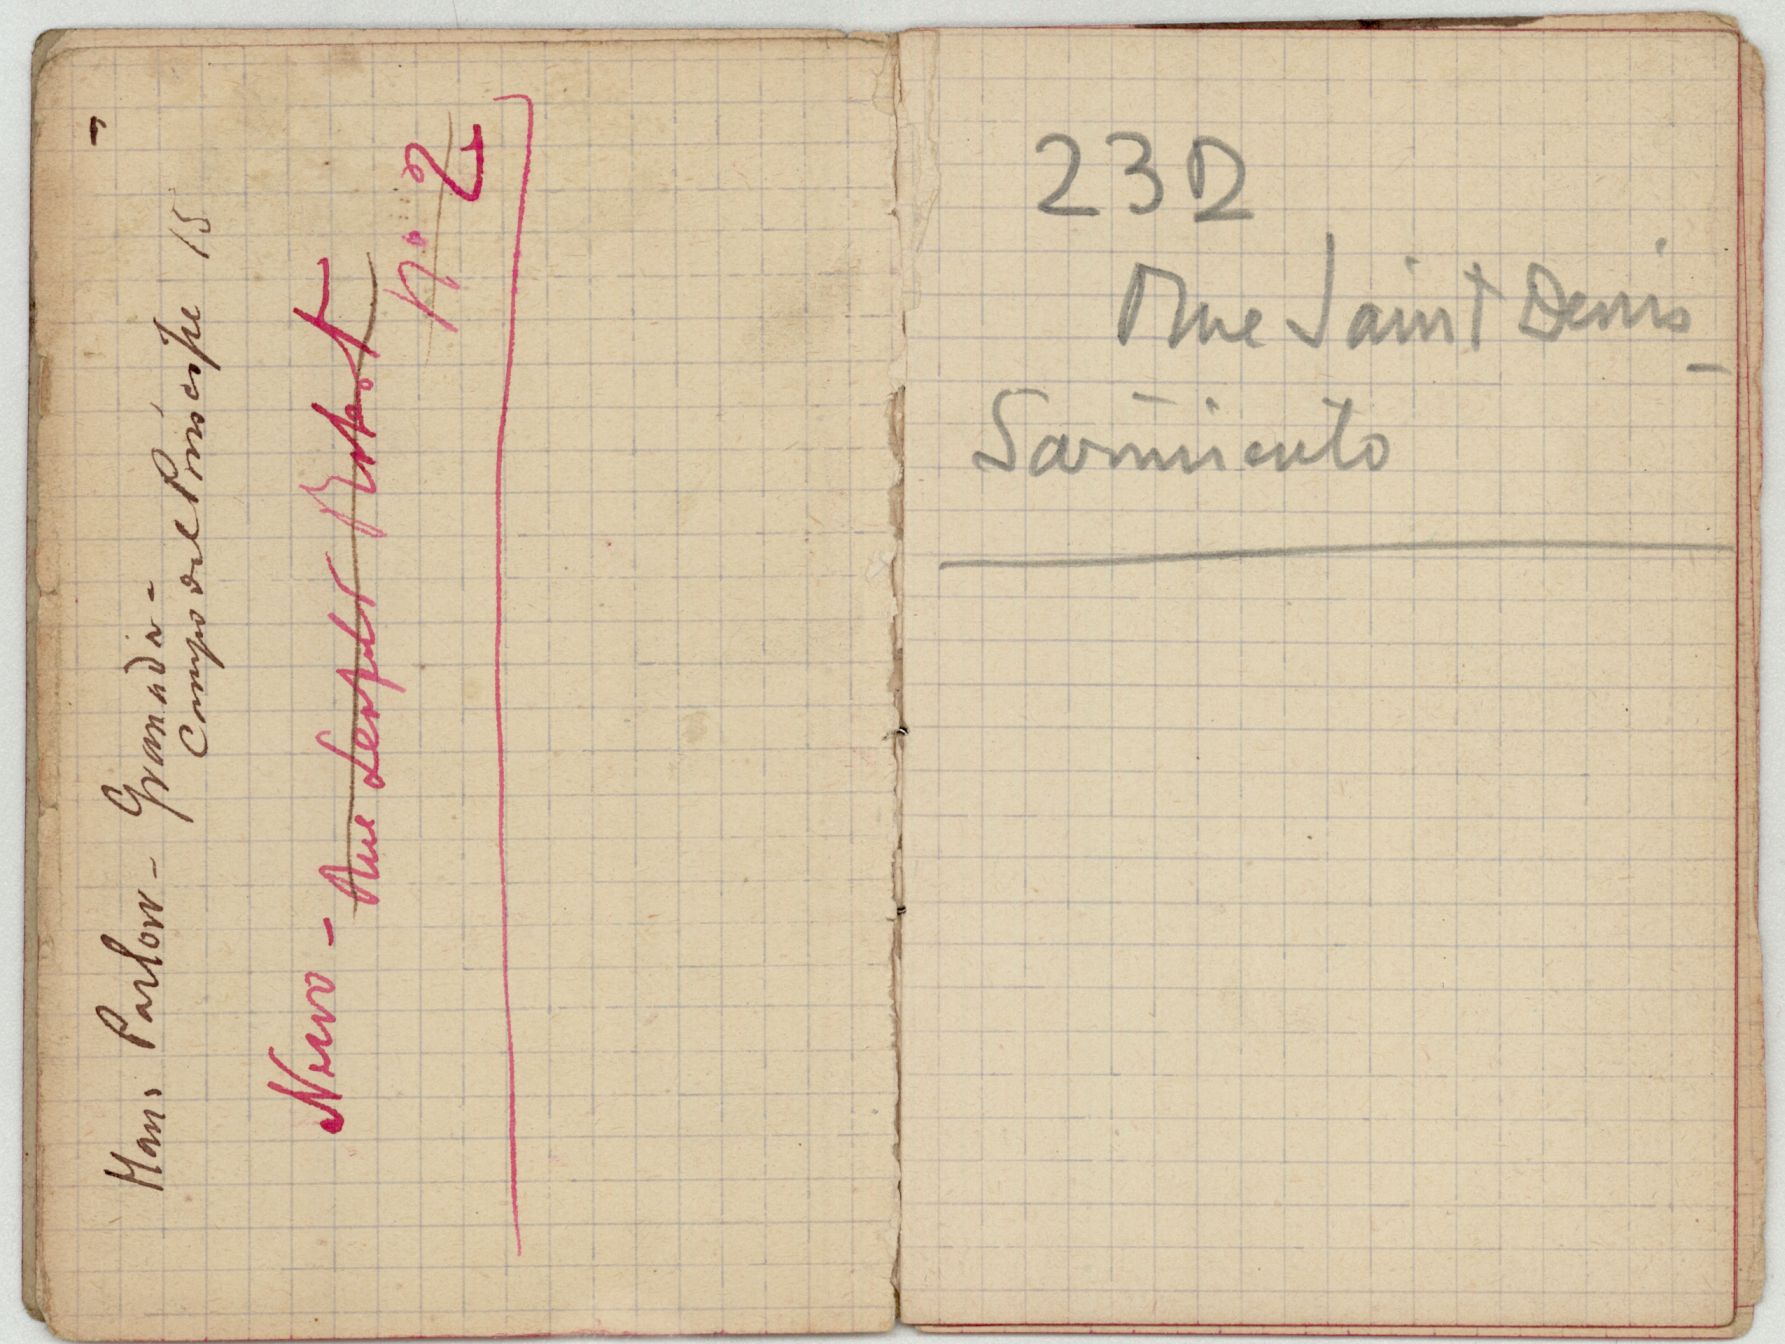 Parlow - Granada -
Campo del Principe 15
Nervo - Rue
Nº 2
232
Rue Saint Denis -
Sarmiento